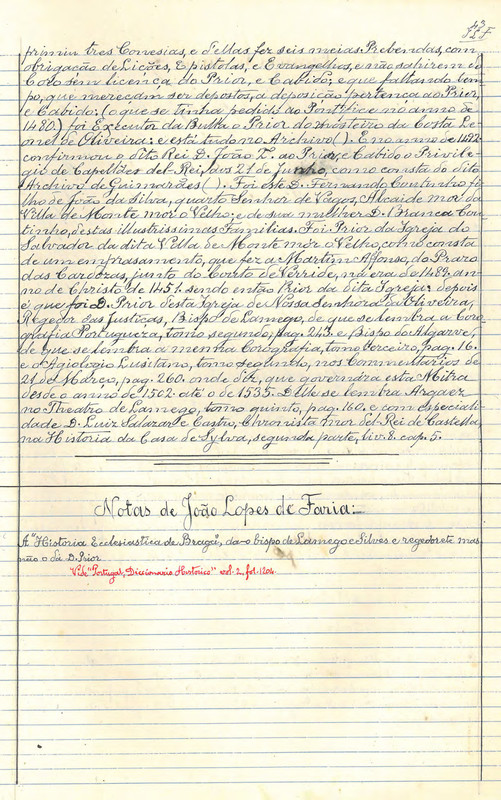 43
primiu tres Conesias, e d'ellas fez seis meias Prebendas, com
obrigação de Licões, Epistolas, e Evangelhos, e não sahirem do
Coro sem licença do Prior, e Cabido; e que faltando tem-
po, que mereçam ser depostos, a deposição pertença ao Prior,
e Cabido: (o que se tinha pedido ao Pontifice no anno de
1480.) foi Executor da Bulla o Prior do mosteiro da Costa Le-
onel de Oliveira: e está tudo no Archivo ( ). E no anno de 1492
confirmou o dito Rei D. João 2.º ao Prior, e Cabido o Privile-
gio de Capellães del-Rei, aos 21 de Junho, como consta do dito
Archivo de Guimarães ( ). Foi este D. Fernando Coutinho fi-
lho de João da Silva, quarto Senhor de Vagos, Alcaide mor da
Villa de Monte mór o Velho; e de sua mulher D. Branca Cou-
tinho, destas illustrissimas Familias. Foi Prior da Igreja do
Salvador da dita Villa de Monte mór o Velho, como consta
de um emprasamento, que fez a Martim Affonso, do Prazo
das Cardozas, junto do Couto de Verride, na era de 1489, an-
no de Christo de 1451. sendo então Prior da dita Igreja: depois
é, que foi D. Prior desta Igreja de Nossa Senhora da Oliveira,
Regedor das Justiças, Bispo de Lamego, de que se lembra a Coro-
grafia Portugueza, tomo segundo, pag. 243. e Bispo do Algarve,
de que se lembra a mesma Corografia, tomo terceiro, pag. 16.
e o Agiologio Lusitano, tomo segundo, nos Commentarios de
21 de Março, pag. 260. onde diz, que governára esta Mitra
desde o anno de 1502 até o de 1535. Delle se lembra Argaez
no Theatro de Lamego, tomo quinto, pag. 160. e com especiali-
dade D. Luiz Salazar e Castro, Chronista mor del-Rei de Castella,
na Historia da Casa de Sylva, segunda parte, liv. 8. cap. 5.
Notas de João Lopes de Faria:
A "Historia Ecclesiastica de Braga", da-o bispo de Lamego e Silves e regedor etc mas
não o dá D. Prior.
Vide "Portugal, Diccionario Historico" vol. 2, fol. 1204.